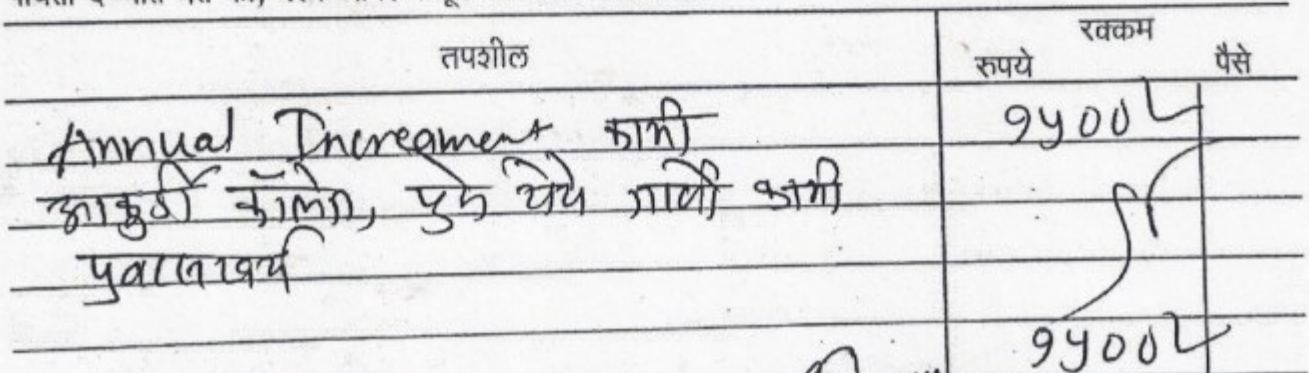 तपशील
रक्कम
रुपये पैसे
Annual Increament कामी १५००/-
आकुर्डी कॉलेज, पुणे येथे जाणे कामी
प्रवासखर्च
१५००/-